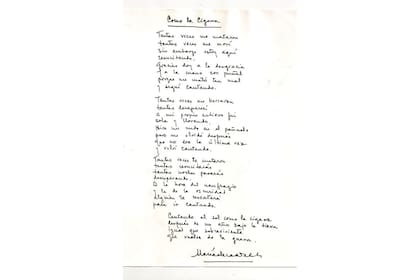 Como la Cigarra
Tantas veces me mataron
tantas veces me morí
sin embargo estoy aquí
resucitando.
Gracias doy a la desgracia
y a la mano con puñal
porque me mató tan mal
y seguí cantando.
Tantas veces me borraron
tantas desaparecí
a mi propio entierro fui
sola y llorando.
Hice un nudo en el pañuelo
pero me olvidé después
que no era la única vez
y volví cantando.
Tantas veces te mataron
tantas resucitarás
tantas noches pasarás
desesperando.
A la hora del naufragio
y la de la oscuridad
alguien te rescatará
para ir cantando.
Cantando al sol como la cigarra
después de un año bajo la tierra
igual que sobreviviente
que vuelve de la guerra.